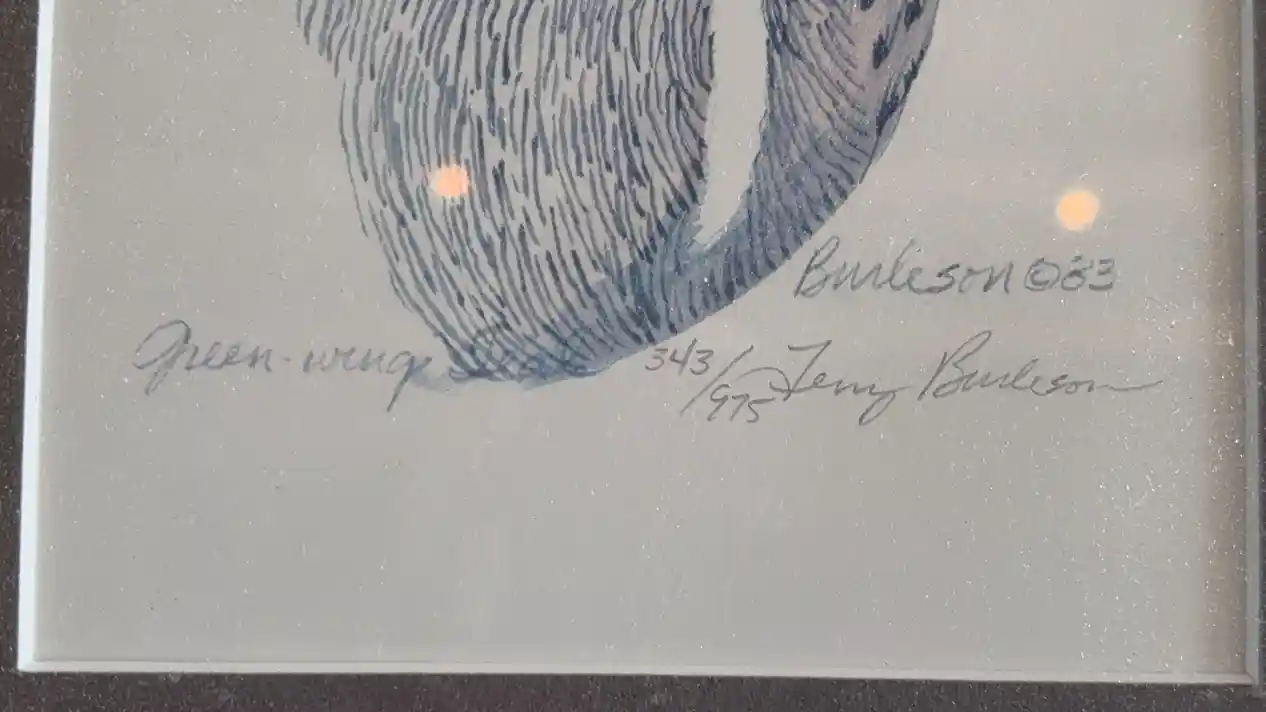 Burleson © 83
Green-wing Teal 343/975 Terry Burleson